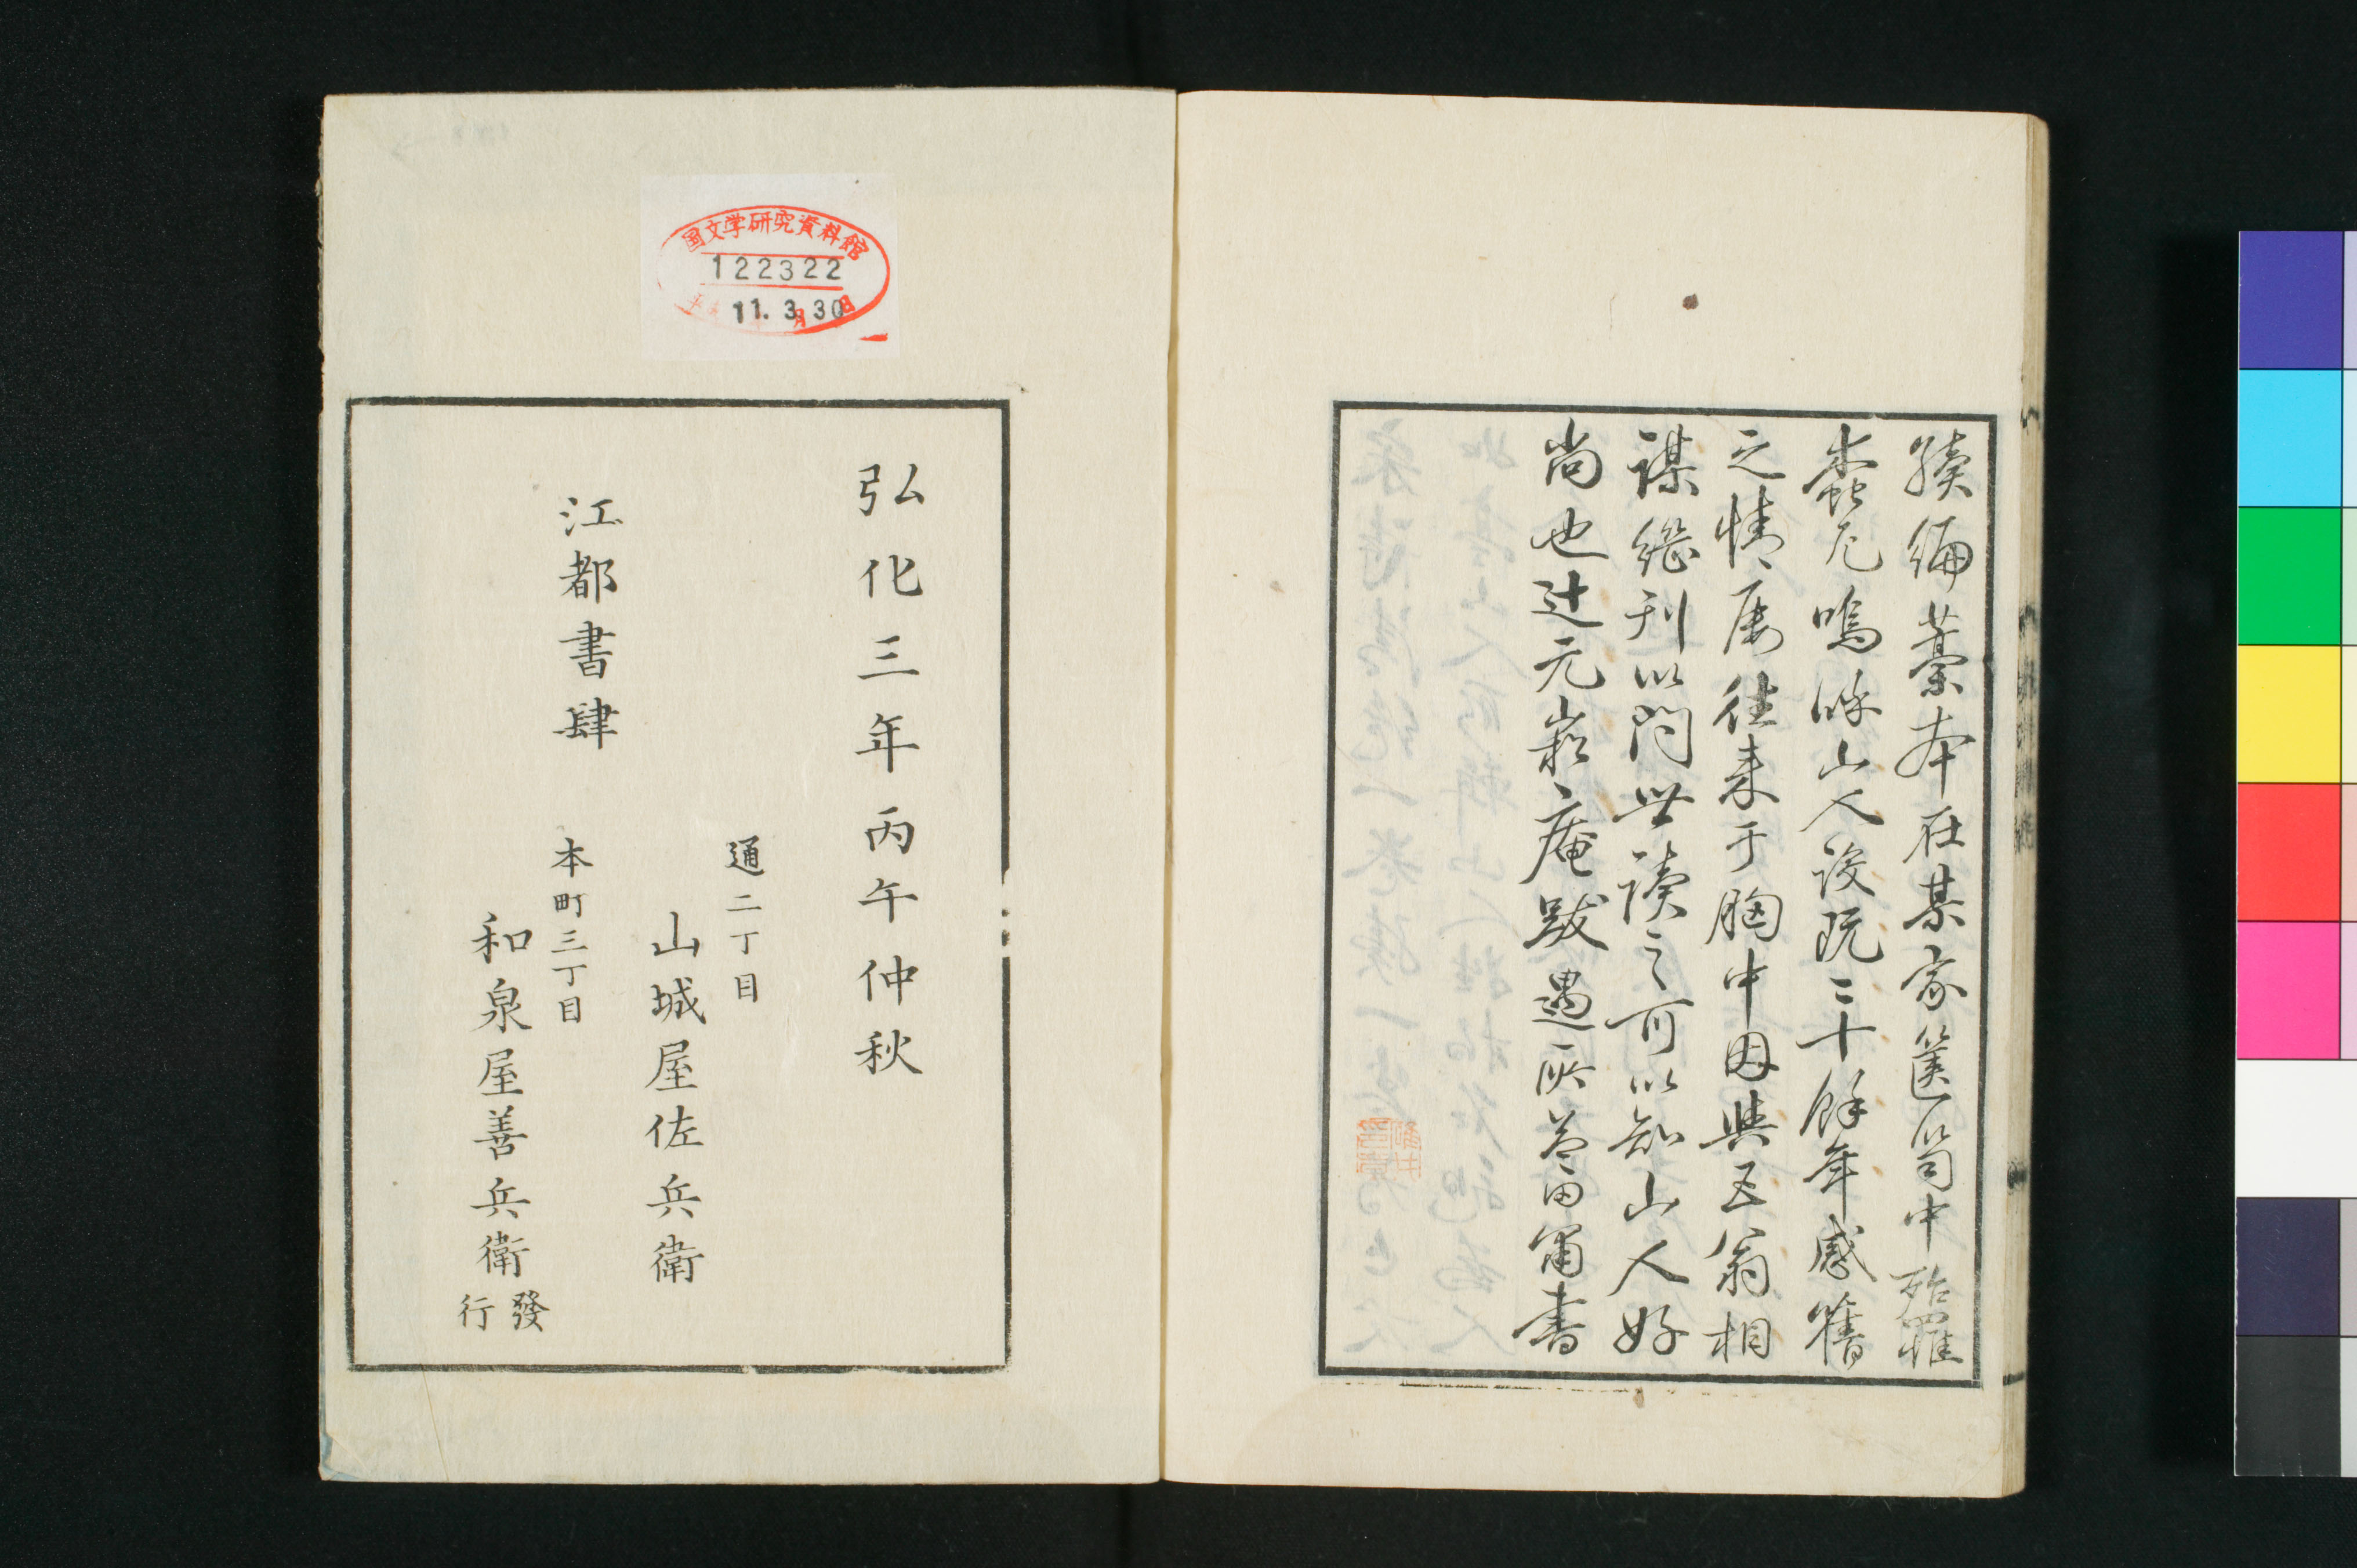 續編藁本在某家篋笥中殆罹
蠹厄嗚呼山人沒既三十餘年感舊
之情屡往来于胸中因與五翁相
謀繼刊以問世讀之可以知山人好
尚也辻元崧庵跋遇所益田甯書
弘化三年丙午仲秋
江都書肆
通二丁目
山城屋佐兵衛
本町三丁目
和泉屋善兵衛
發行
国文学研究資料館
122322
11.3.30